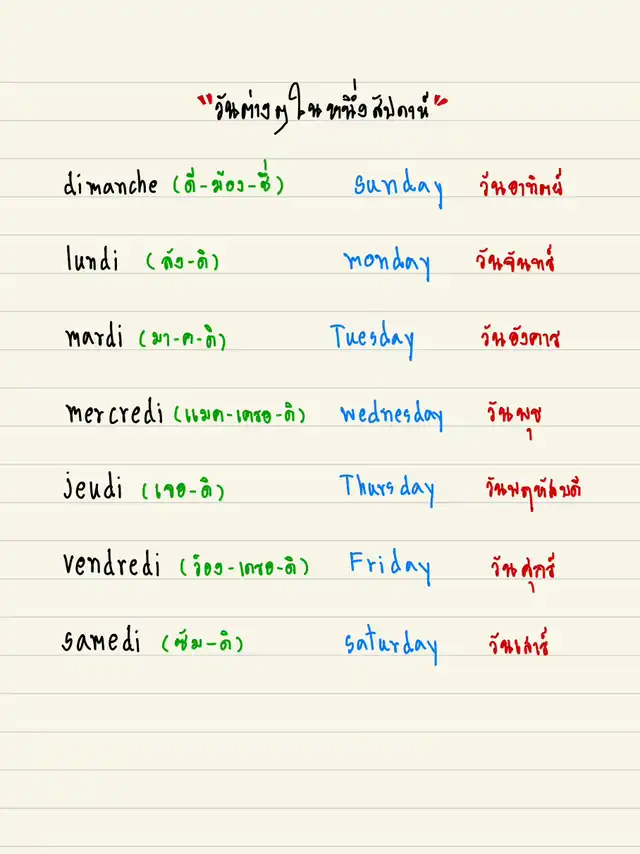 "วันต่างๆ ในหนึ่งสัปดาห์"
dimanche (ดี-ม้อง-ชึ่) sunday วันอาทิตย์
lundi (ลัง-ดิ) monday วันจันทร์
mardi (มา-ค-ดิ) Tuesday วันอังคาร
mercredi (แมค-เครอ-ดิ) wednesday วันพุธ
jeudi (เจอ-ดิ) Thursday วันพฤหัสบดี
vendredi (ว็อง-เดรอ-ดิ) Friday วันศุกร์
samedi (ซัม-ดิ) saturday วันเสาร์